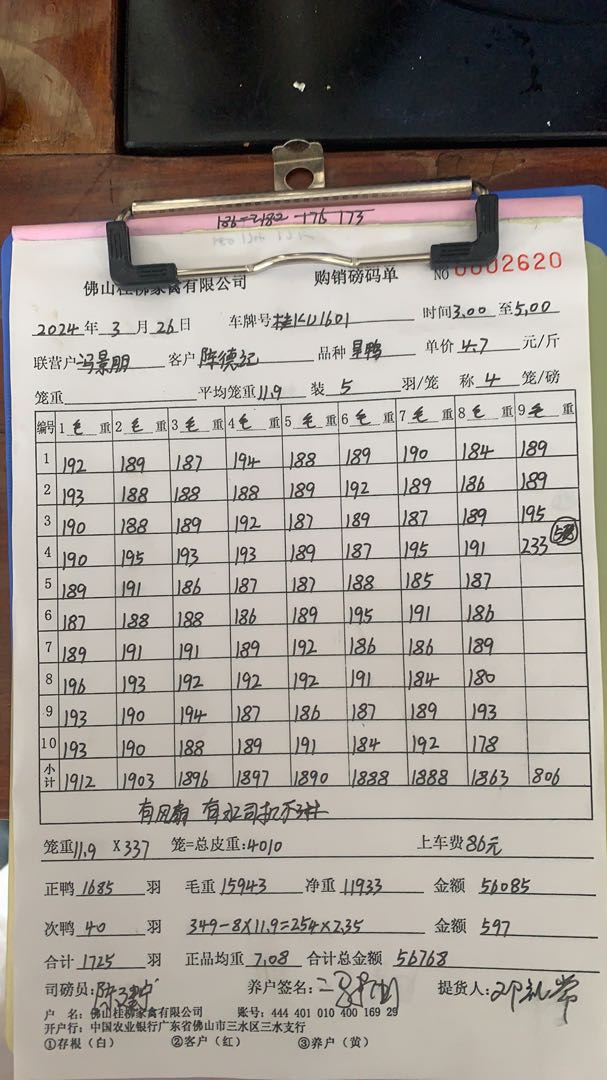 186 182 176 173
佛山桂柳家禽有限公司 购销磅码单 NO 0002620
2024年 3 月 26 日 车牌号 桂KU1601 时间 3.00 至 5.00
联营户 冯景朋 客户 陈德记 品种 旱鸭 单价 4.7 元/斤
笼重 平均笼重 11.9 装 5 羽/笼 称 4 笼/磅
编号 1 毛 重 2 毛 重 3 毛 重 4 毛 重 5 毛 重 6 毛 重 7 毛 重 8 毛 重 9 毛 重
1 192 189 187 194 188 189 190 184 189
2 193 188 188 188 189 192 189 186 189
3 190 188 189 192 187 189 187 189 195
4 190 195 193 193 189 187 195 191 233
5 189 191 186 187 187 188 185 187
6 187 188 188 186 189 195 191 186
7 189 191 191 189 192 186 186 189
8 196 193 192 192 192 191 184 180
9 193 190 194 187 186 187 189 193
10 193 190 188 189 191 184 192 178
小计 1912 1903 1896 1897 1890 1888 1888 1863 806
有风扇 有水司机不
笼重 11.9 X 337 笼=总皮重:4010 上车费 86元
正鸭 1685 羽 毛重 15943 净重 11933 金额 56085
次鸭 40 羽 349-8X11.9=254X2.35 金额 597
合计 1725 羽 正品均重 7.08 合计总金额 56768
司磅员: 养户签名: 提货人:
户 名:佛山桂柳家禽有限公司 账号:444 401 010 400 169 29
开户行:中国农业银行广东省佛山市三水区三水支行
①存根（白） ②客户（红） ③养户（黄）